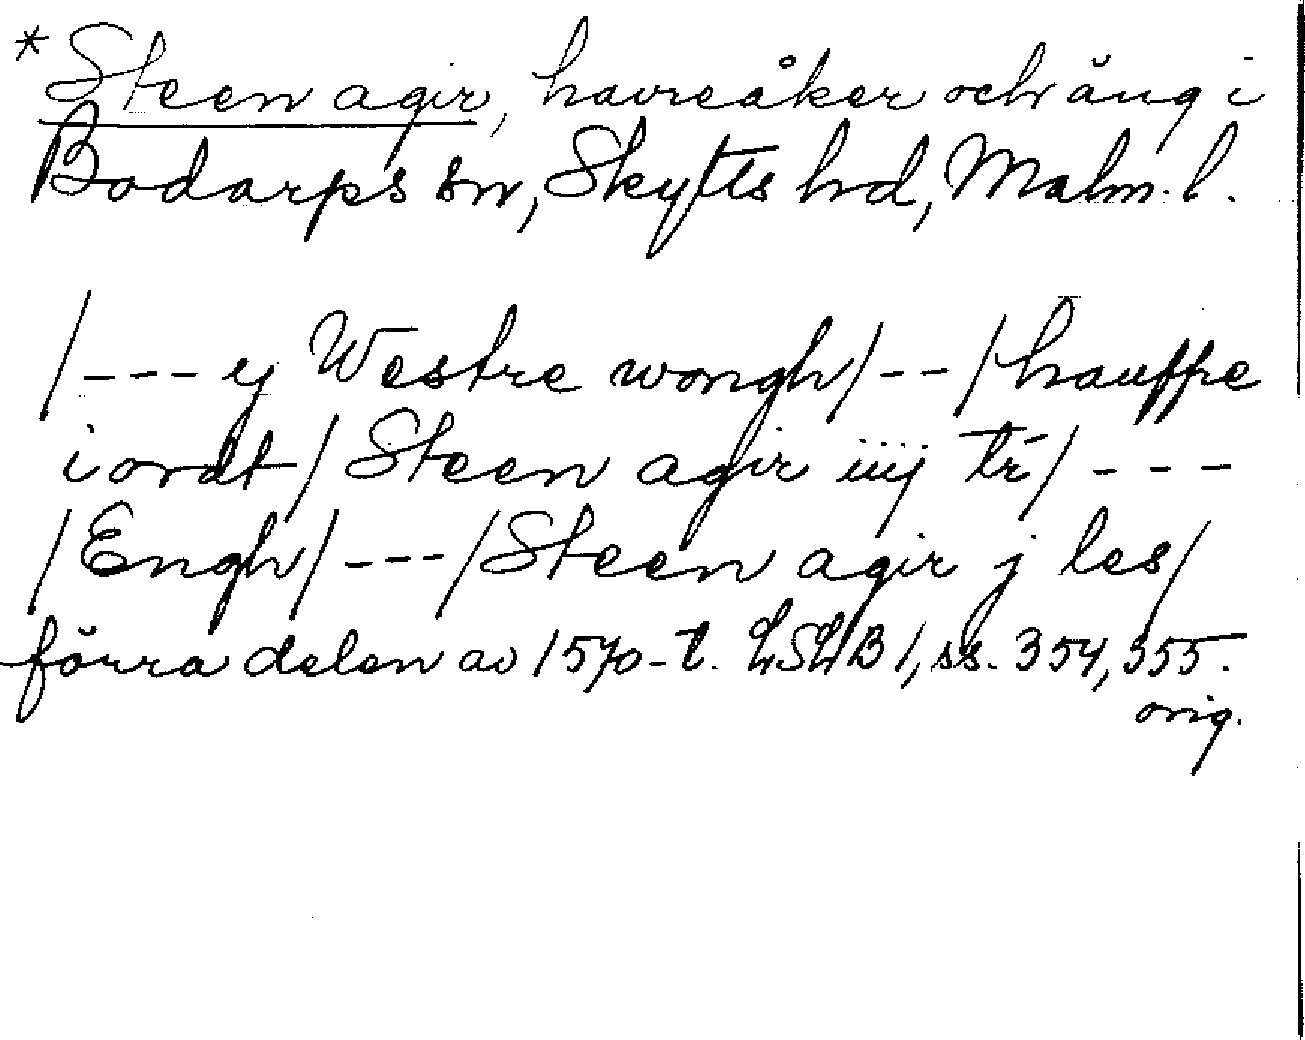 *Steen agir, havreåker och äng i
Bodarps sn, Skytts hd, Malm. l.
/--- y Westre wongh/--/hauffre
iordt/Steen agir iiij tr/---
/Engh/---/Steen agir j les/
förra delen av 1570-t. LSLB 1, ss. 354, 355.
orig.